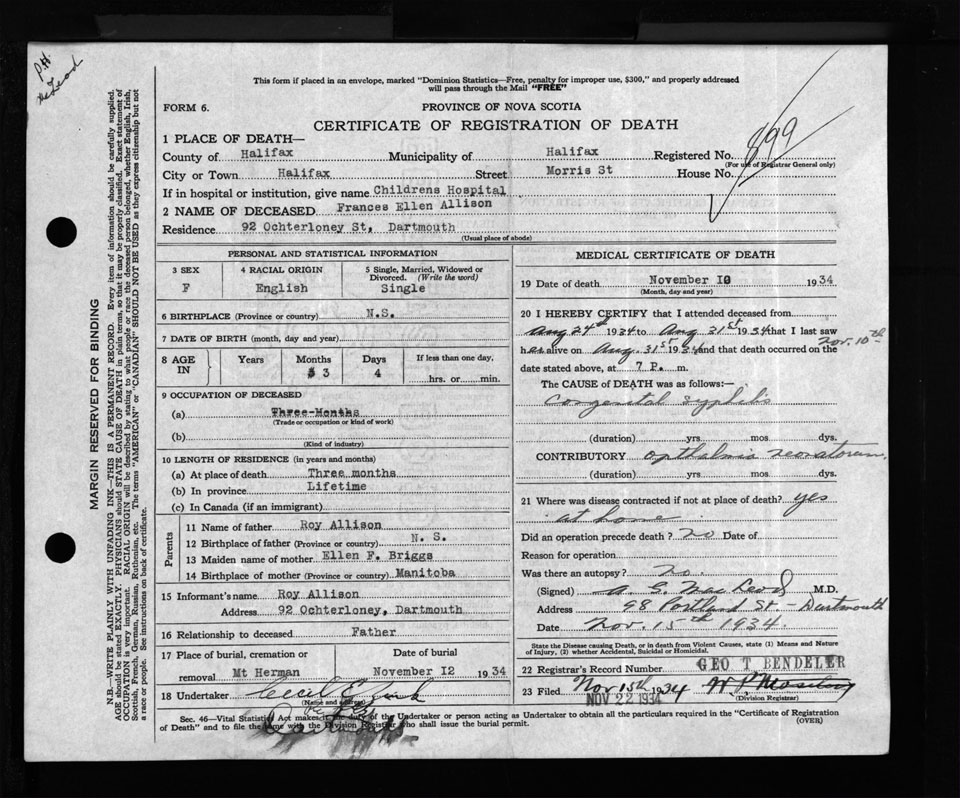 P.H.
This form if placed in an envelope, marked "Dominion Statistics—Free, penalty for improper use, $300," and properly addressed
will pass through the Mail "FREE"
FORM 6.
PROVINCE OF NOVA SCOTIA
CERTIFICATE OF REGISTRATION OF DEATH
1 PLACE OF DEATH—
County of Halifax Municipality of Halifax Registered No. 899
(For use of Registrar General only)
City or Town Halifax Street Morris St House No.
If in hospital or institution, give name Childrens Hospital
2 NAME OF DECEASED Frances Ellen Allison
Residence 92 Ochterloney St, Dartmouth
(Usual place of abode)
MARGIN RESERVED FOR BINDING
N.B.—WRITE PLAINLY WITH UNFADING INK—THIS IS A PERMANENT RECORD. Every item of information should be carefully supplied.
AGE should be stated EXACTLY. PHYSICIANS should STATE CAUSE OF DEATH in plain terms, so that it may be properly classified. Exact statement of
OCCUPATION is very important. RACIAL ORIGIN will be described by stating to what people or race the deceased person belonged, whether English, Irish,
Scottish, French, German, Russian, Ruthenian, etc. The terms "AMERICAN" or "CANADIAN" SHOULD NOT BE USED as they express citizenship but not
a race or people. See instructions on back of certificate.
PERSONAL AND STATISTICAL INFORMATION
3 SEX
F
4 RACIAL ORIGIN
English
5 Single, Married, Widowed or
Divorced. (Write the word)
Single
6 BIRTHPLACE (Province or country) N.S.
7 DATE OF BIRTH (month, day and year)
8 AGE IN
Years Months Days If less than one day,
3 4 hrs. or min.
9 OCCUPATION OF DECEASED
(a) Three-Months
(Trade or occupation or kind of work)
(b)
(Kind of industry)
10 LENGTH OF RESIDENCE (in years and months)
(a) At place of death Three months
(b) In province Lifetime
(c) In Canada (if an immigrant)
Parents
11 Name of father Roy Allison
12 Birthplace of father (Province or country) N. S.
13 Maiden name of mother Ellen F. Briggs
14 Birthplace of mother (Province or country) Manitoba
15 Informant's name Roy Allison
Address 92 Ochterloney, Dartmouth
16 Relationship to deceased Father
17 Place of burial, cremation or
removal Mt Herman
Date of burial
November 12 1934
18 Undertaker Cecil E.
(Name and address)
MEDICAL CERTIFICATE OF DEATH
19 Date of death November 10 1934
(Month, day and year)
20 I HEREBY CERTIFY that I attended deceased from
Aug 24th 1934 to Aug 31st 1934 that I last saw
her alive on Aug. 31st 1934 and that death occurred on the Nov. 10th
date stated above, at 7 P. m.
The CAUSE of DEATH was as follows:—
Congenital syphilis
(duration) yrs mos dys.
CONTRIBUTORY Opthalmia neonatorum
(duration) yrs mos dys.
21 Where was disease contracted if not at place of death? yes
at home
Did an operation precede death? no Date of
Reason for operation
Was there an autopsy? no.
(Signed) A. G. MacLeod M.D.
Address 98 Portland St. - Dartmouth
Date Nov. 15th 1934.
State the Disease causing Death, or in death from Violent Causes, state (1) Means and Nature
of Injury, (2) whether Accidental, Suicidal or Homicidal.
22 Registrar's Record Number GEO T BENDELER
23 Filed Nov 15th 1934
NOV 22 1934
(Division Registrar)
Sec. 46—Vital Statistics Act makes it the duty of the Undertaker or person acting as Undertaker to obtain all the particulars required in the "Certificate of Registration
of Death" and to file the same with the Division Registrar who shall issue the burial permit.
(OVER)